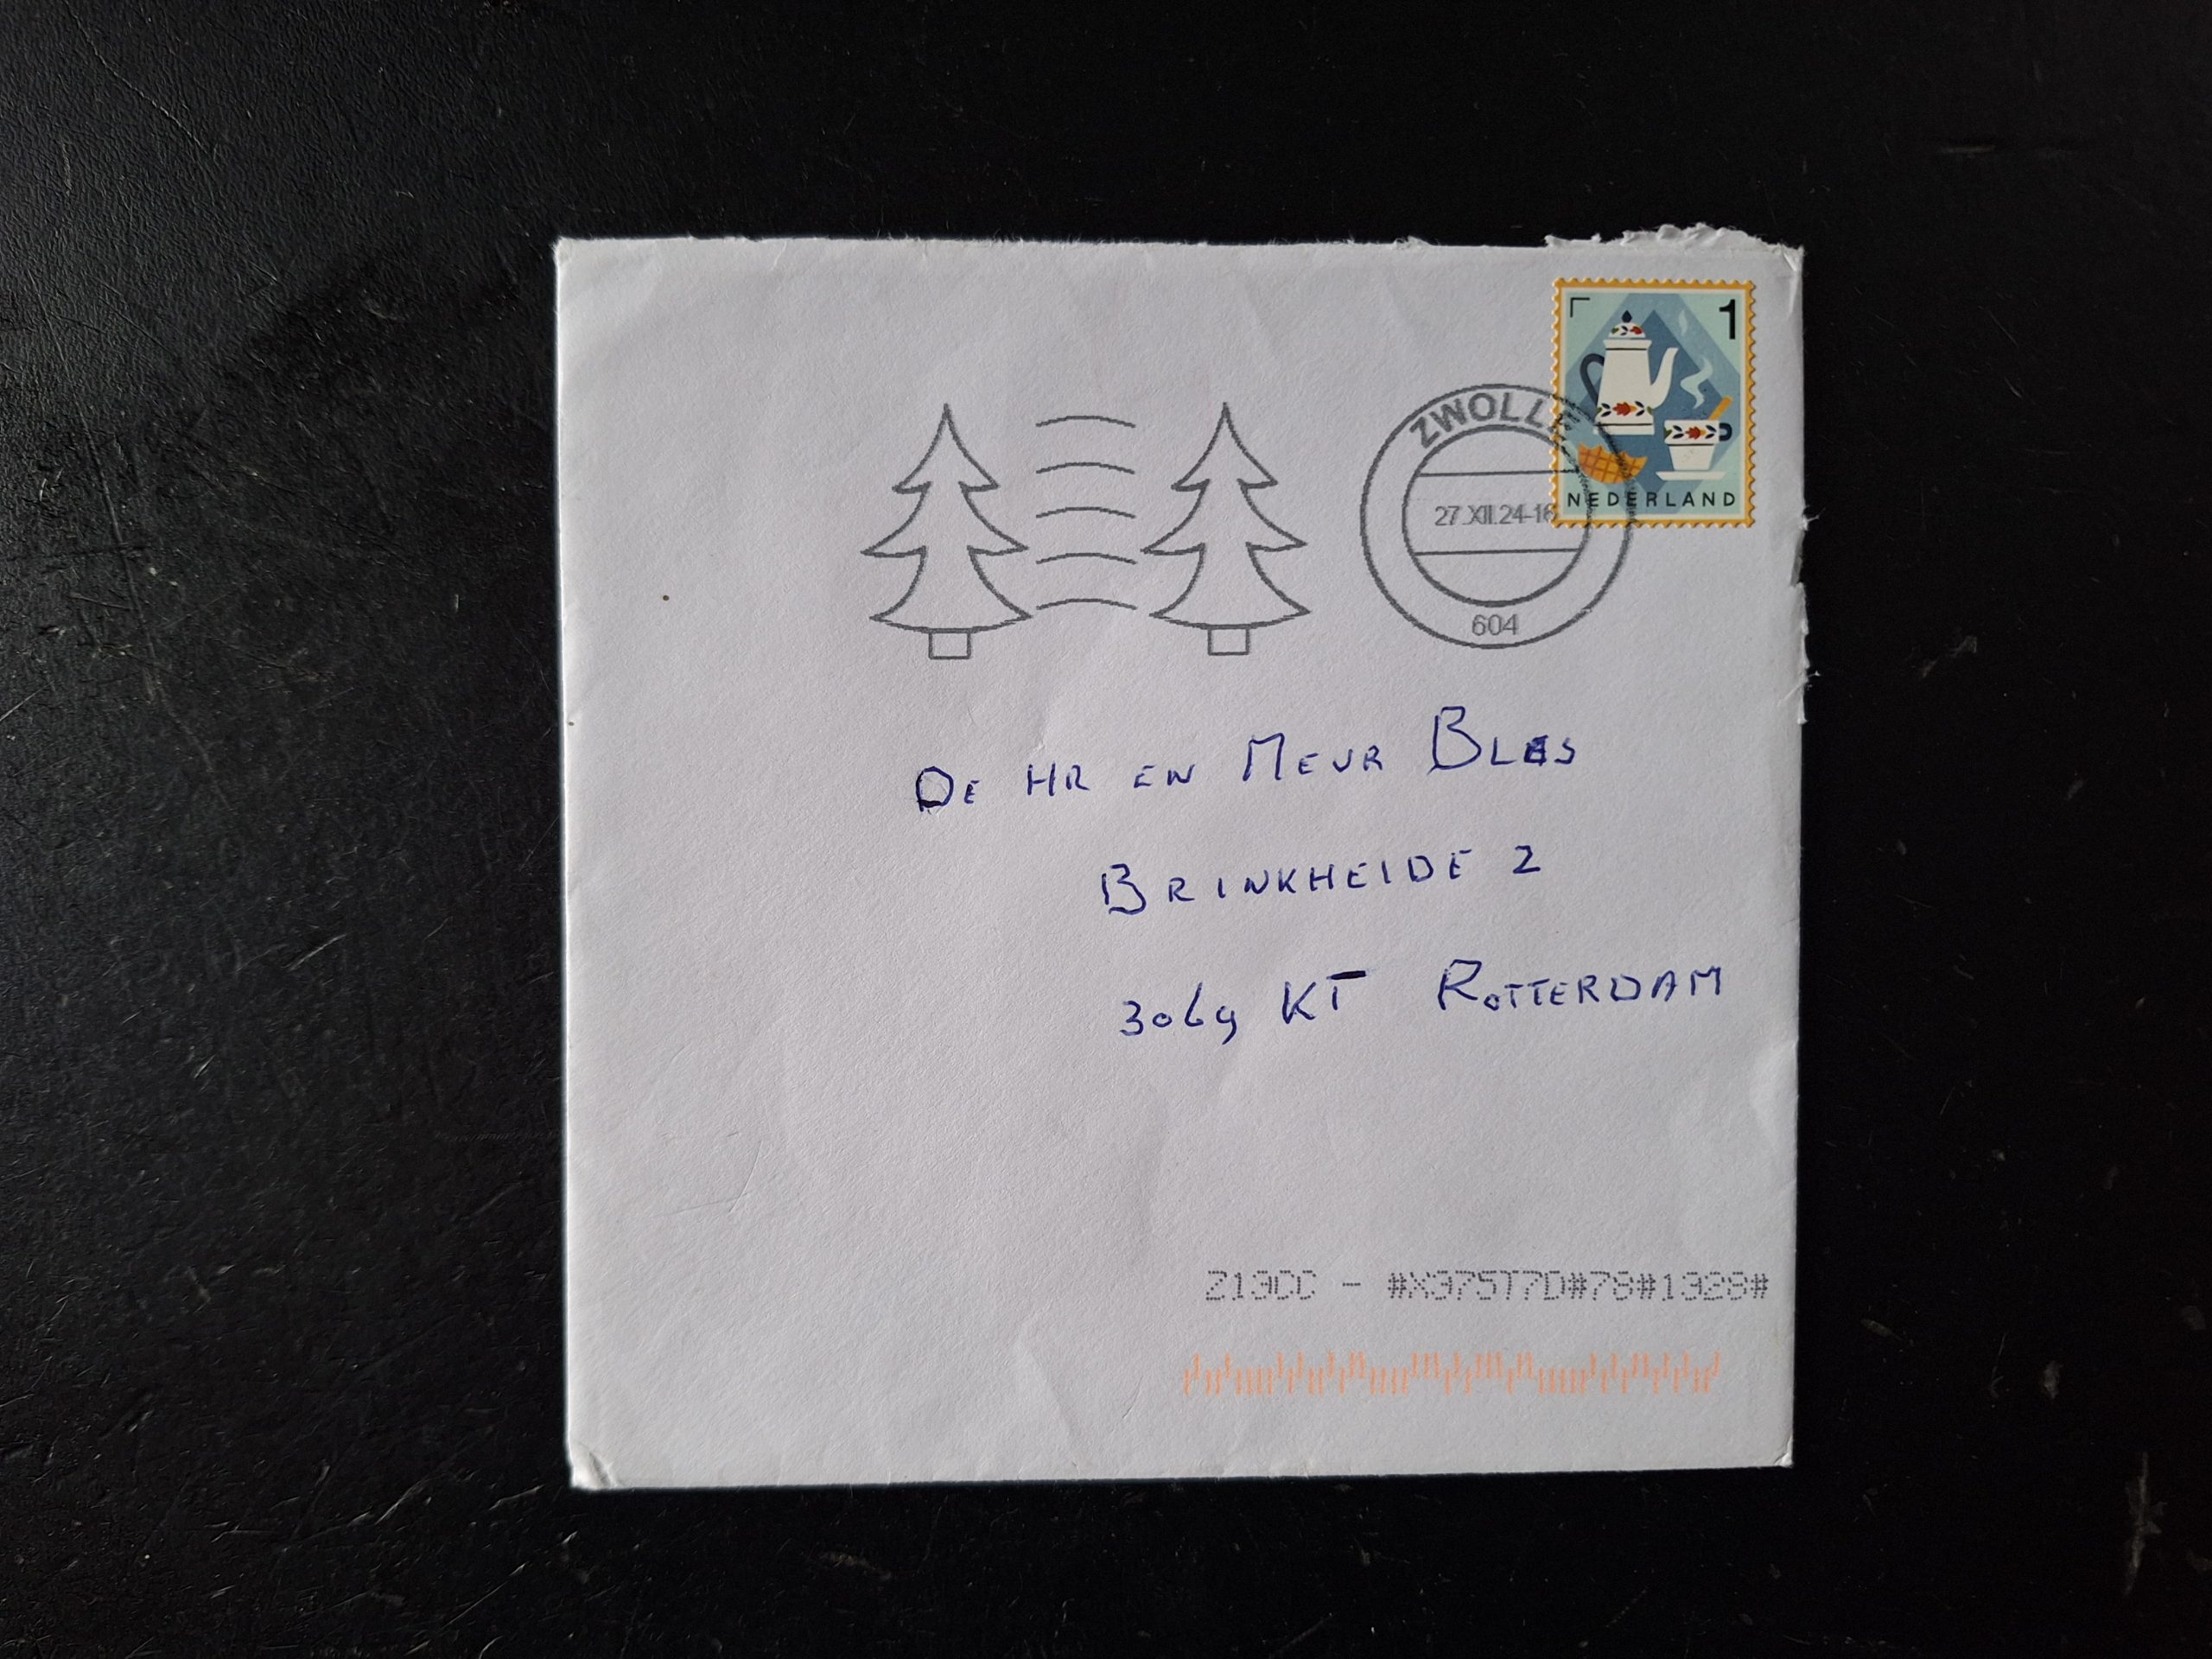 1
NEDERLAND
ZWOLLE
27.XII.24-16
604
DE HR EN MEVR BLES
BRINKHEIDE 2
3069 KT ROTTERDAM
213CC - #X375T7D#78#1328#